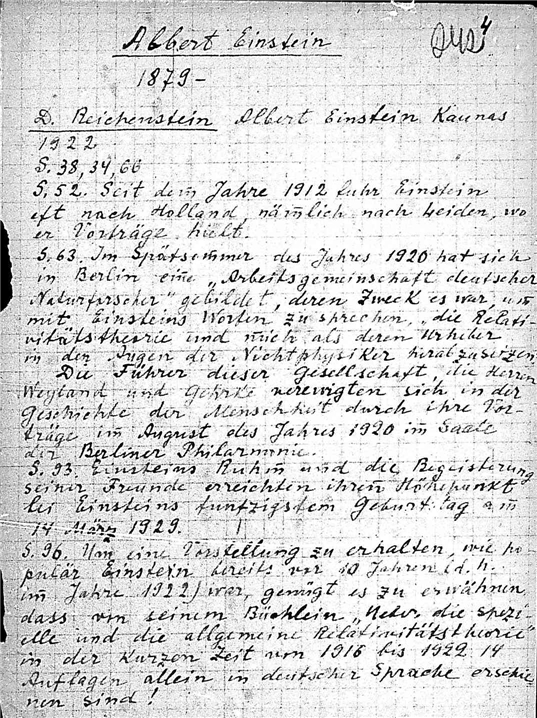 Albert Einstein
1879-
D. Reichenstein Albert Einstein Kaunas
1922
S. 38, 34, 66
S. 52. Seit dem Jahre 1912 fuhr Einstein
oft nach Holland, nämlich nach Leiden, wo
er Vorträge hielt.
S. 63. Im Spätsommer des Jahres 1920 hat sich
in Berlin eine „Arbeitsgemeinschaft deutscher
Naturforscher" gebildet, deren Zweck es war, um
mit Einsteins Worten zu sprechen, „die Relati-
vitätstheorie und mich als deren Urheber
in den Augen der Nichtphysiker herabzusetzen
Die Führer dieser Gesellschaft, die Herren
Weyland und Gehrke verewigten sich in der
Geschichte der Menschheit durch ihre Vor-
träge im August des Jahres 1920 im Saale
der Berliner Philarmonie.
S. 93. Einsteins Ruhm und die Begeisterung
seiner Freunde erreichten ihren Höhepunkt
bei Einsteins funfzigstem Geburtstag am
14 März 1929.
S. 96. Um eine Vorstellung zu erhalten, wie po
pulär Einstein bereits vor 10 Jahren (d. h.
im Jahre 1922) war, genügt es zu erwähnen
dass von seinem Büchlein „Ueber die spezi-
elle und die allgemeine Relativitätstheorie"
in der kurzen Zeit von 1916 bis 1922 14
Auflagen allein in deutscher Sprache erschie-
nen sind!